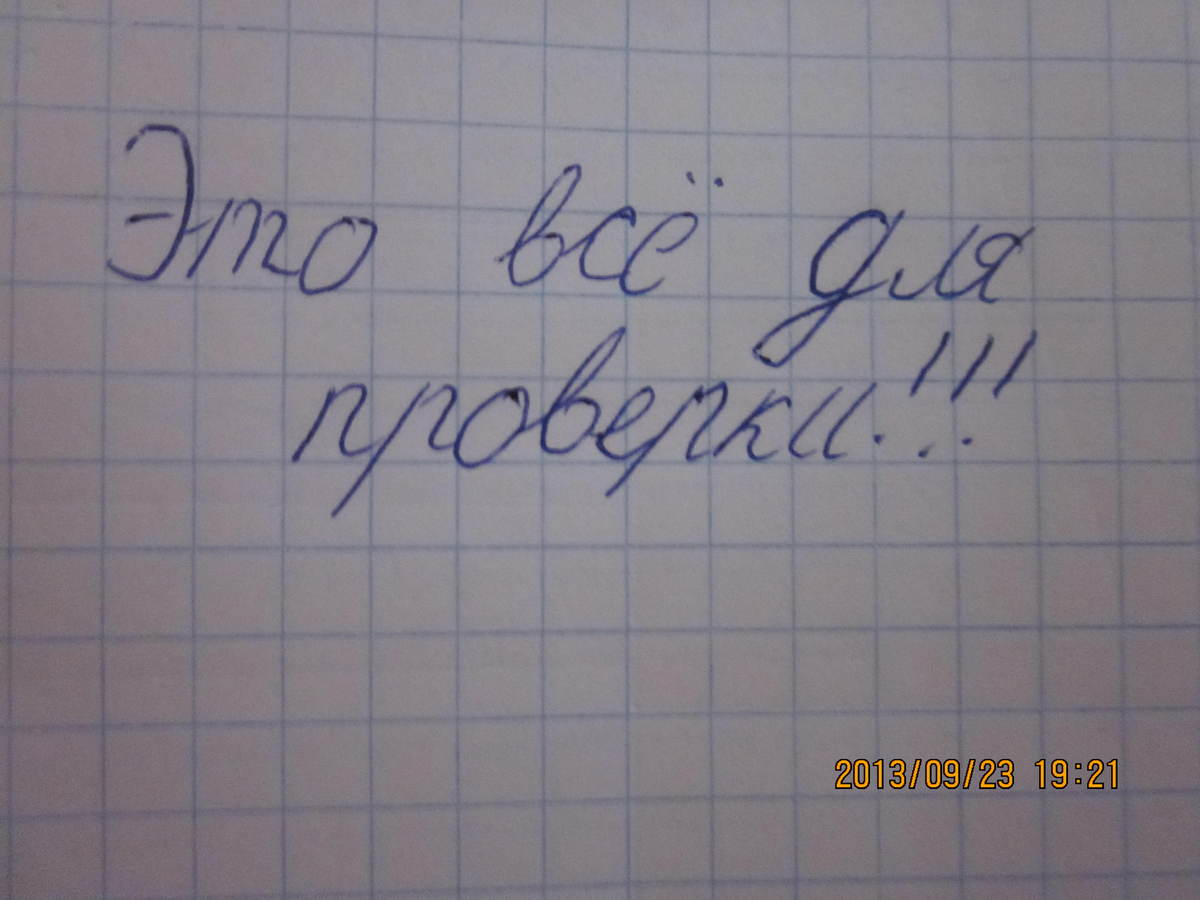 Это всё для
проверки!!!
2013/09/23 19:21